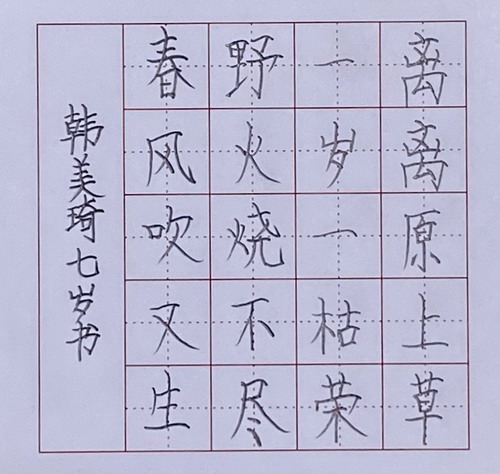 离离原上草
一岁一枯荣
野火烧不尽
春风吹又生
韩美琦七岁书